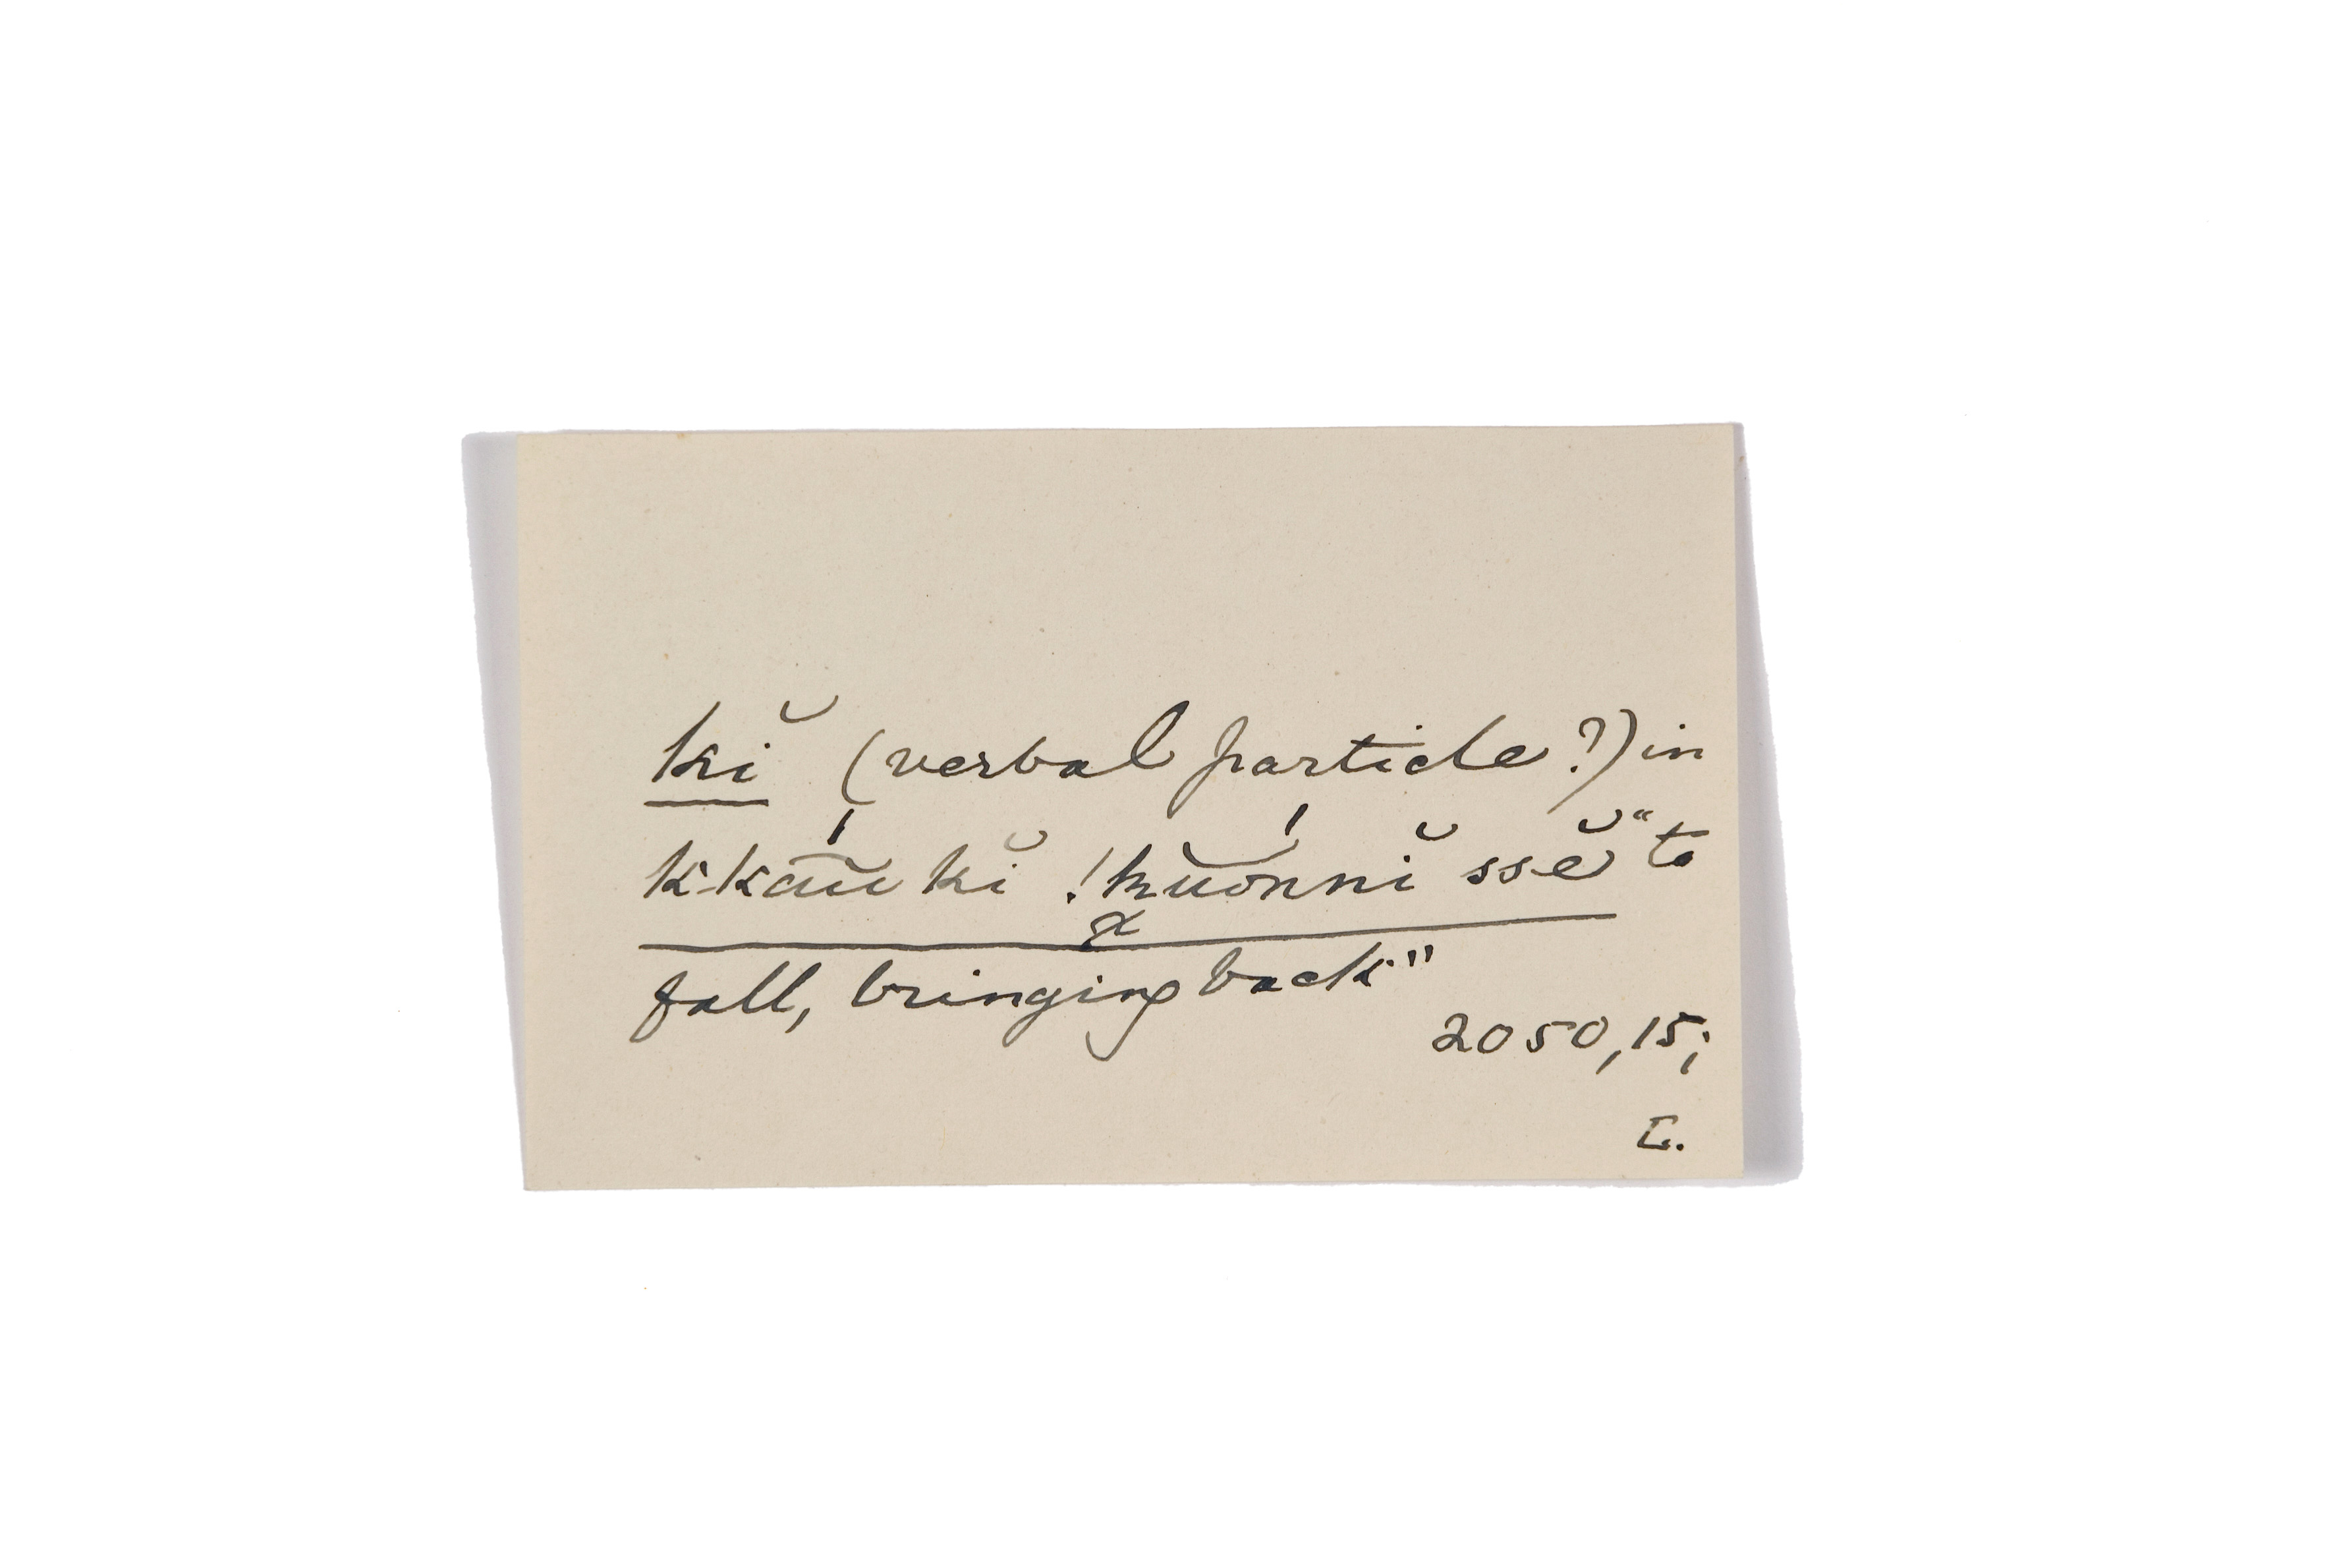 kĭ (verbal particle?) in
k-kā́ŭ kĭ !k͓ŭónnĭ ssĕ "to
fall, bringing back"
2050, 15;
L.